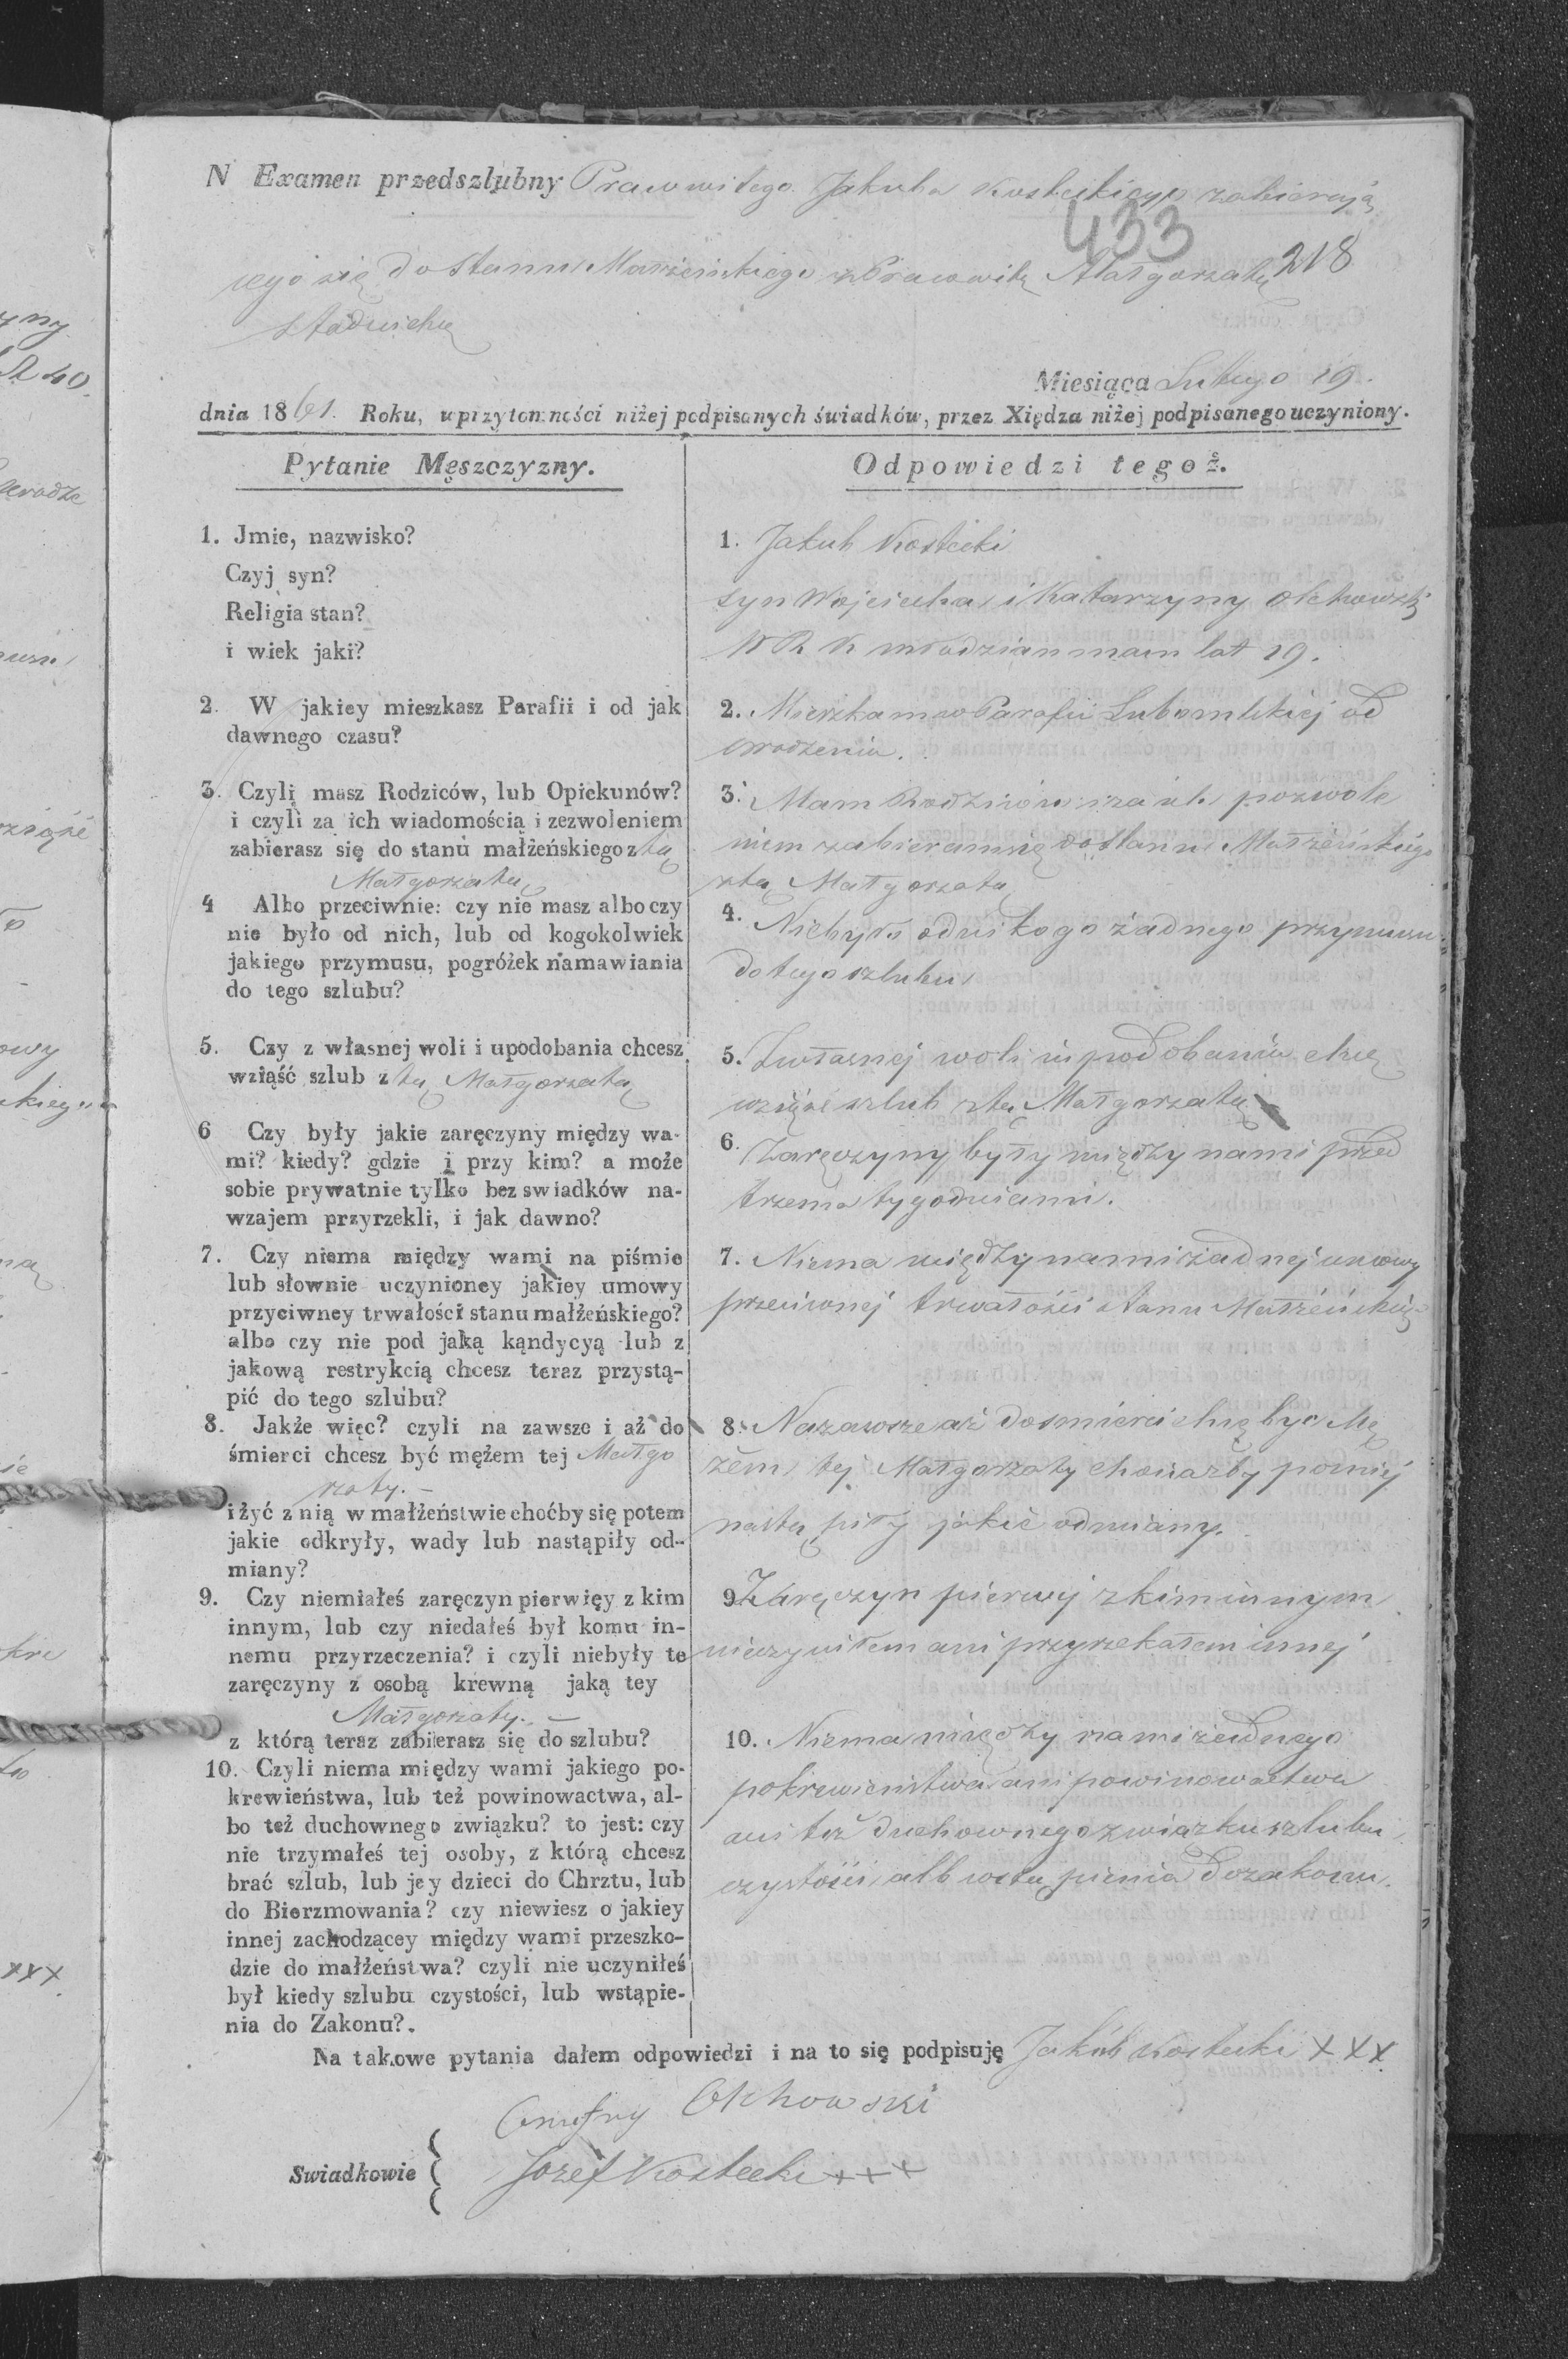 N Examen przedszlubny Prawowitego Jakuba Kosteckiego zabierają
433
cego się do Stanu Małżeńskiego z Pracowitą Małgorzatą 218
Miesiąca Lutego 19.
dnia 1861. Roku, w przytomności niżej podpisanych świadków, przez Xiędza niżej podpisanego uczyniony.
Pytanie Męszczyzny.
Odpowiedzi tegoż.
1. Jmie, nazwisko?
Czyj syn?
Religia stan?
i wiek jaki?
1. Jakub Kostecki
syn Wojciecha i Katarzyny
W R K młodzian mam lat 19.
2. W jakiey mieszkasz Parafii i od jak
dawnego czasu?
2. Mieszkam w Parafii Lubomlskiej od
urodzenia.
3. Czyli masz Rodziców, lub Opiekunów?
i czyli za ich wiadomością i zezwoleniem
zabierasz się do stanu małżeńskiego z tą
Małgorzatą
3. Mam Rodziców i za ich pozwole
niem zabieram się do stanu Małżeńskiego
z tą Małgorzatą
4 Albo przeciwnie: czy nie masz albo czy
nie było od nich, lub od kogokolwiek
jakiego przymusu, pogróżek namawiania
do tego szlubu?
4. Niebyło od nikogo żadnego przymusu
do tego szlubu
5. Czy z własnej woli i upodobania chcesz
wziąść szlub z tą Małgorzatą
5. Z własnej woli i upodobania chcę
wziąść szlub z tą Małgorzatą
6 Czy były jakie zaręczyny między wa-
mi? kiedy? gdzie i przy kim? a może
sobie prywatnie tylko bez swiadków na-
wzajem przyrzekli, i jak dawno?
6. Zaręczyny były między nami przed
trzema tygodniami.
7. Czy niema między wami na piśmie
lub słownie uczynioney jakiey umowy
przyciwney trwałości stanu małżeńskiego?
albo czy nie pod jaką kąndycyą lub z
jakową restrykcią chcesz teraz przystą-
pić do tego szlubu?
7. Niema między nami żadnej umowy
przeciwnej trwałości stanu Małżeńskiego
8. Jakże więc? czyli na zawsze i aż do
śmierci chcesz być mężem tej Małgo
rzaty.—
i żyć z nią w małżeństwie choćby się potem
jakie odkryły, wady lub nastąpiły od-
miany?
8. Na zawsze aż do śmierci chcę być Mę
żem tej Małgorzaty chociażby poniej
nastąpiły jakie odmiany.
9. Czy niemiałeś zaręczyn pierwięy z kim
innym, lub czy niedałeś był komu in-
nemu przyrzeczenia? i czyli niebyły te
zaręczyny z osobą krewną jaką tey
Małgorzaty.—
z którą teraz zabierasz się do szlubu?
9 Zaręczyn pierwej z kim innym
nieczyniłem ani przyrzekałem innej
10. Czyli niema między wami jakiego po-
krewieństwa, lub też powinowactwa, al-
bo też duchownego związku? to jest: czy
nie trzymałeś tej osoby, z którą chcesz
brać szlub, lub jey dzieci do Chrztu, lub
do Bierzmowania? czy niewiesz o jakiey
innej zachodzącey między wami przeszko-
dzie do małżeństwa? czyli nie uczyniłeś
był kiedy szlubu czystości, lub wstąpie-
nia do Zakonu?.
10. Niema między nami żadnego
pokrewieństwa ani powinowactwa
ani też duchownego związku szlubu
czystości alb wstąpienia do zakonu.
Na takowe pytania dałem odpowiedzi i na to się podpisuję Jakub Kostecki XXX
Swiadkowie
Onufry Olchowski
Jozef Kostecki +++